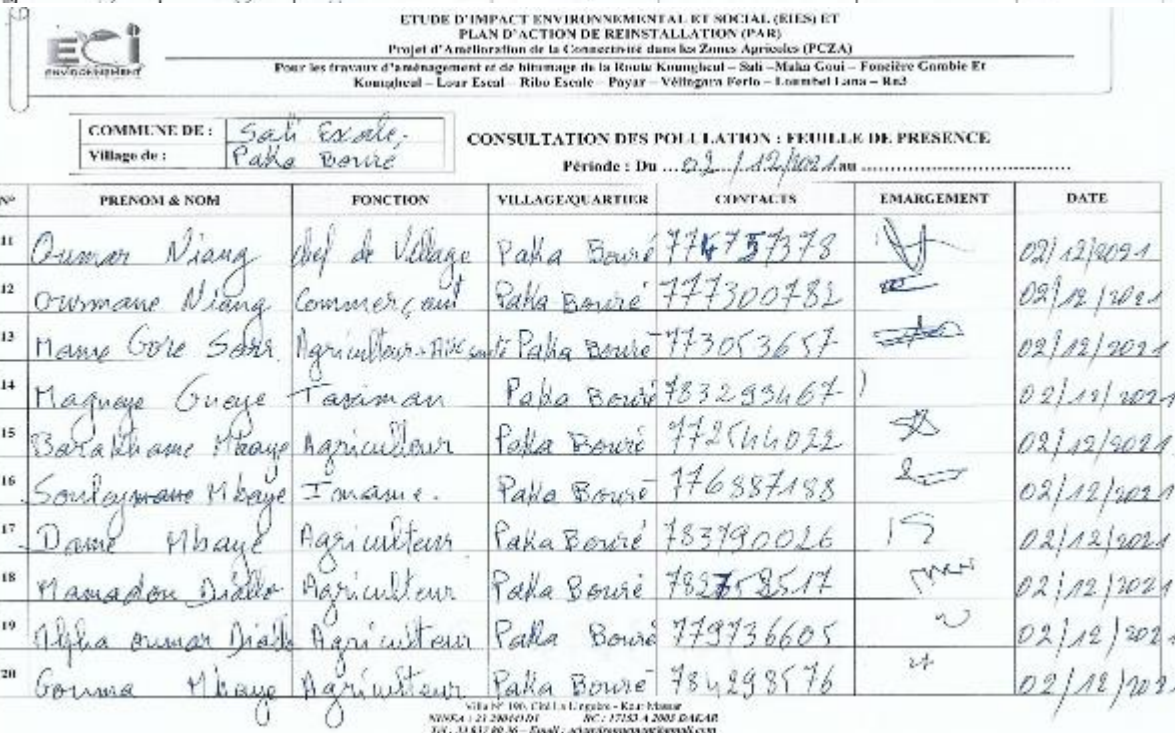 ECI
ENVIRONNEMENT
ETUDE D'IMPACT ENVIRONNEMENTAL ET SOCIAL (EIES) ET
PLAN D'ACTION DE REINSTALLATION (PAR)
Projet d'Amélioration de la Connectivité dans les Zones Agricoles (PCZA)
Pour les travaux d'aménagement et de bitumage de la Route Koungheul – Sali –Maka Goui – Foncière Gambie Et
Koungheul – Lour Escal – Ribo Escale – Payar – Vélingara Ferlo – Loumbel Lana – Rn3
COMMUNE DE : Sali Escale
Village de : Paka Bouré
CONSULTATION DES POLULATION : FEUILLE DE PRESENCE
Période : Du ...02../.12/2021 au
N° PRENOM & NOM FONCTION VILLAGE/QUARTIER CONTACTS EMARGEMENT DATE
11 Oumar Niang chef de Village Paka Bouré 774757378 02/12/2021
12 Ousmane Niang Commerçant Paka Bouré 777300782 02/12/2021
13 Mame Gore Sarr Agriculteur Paka Bouré 773053657 02/12/2021
14 Magueye Gueye Taximan Paka Bouré 783293467 02/12/2021
15 Barakhame Mbaye Agriculteur Paka Bouré 772544022 02/12/2021
16 Souleymane Mbaye Imame. Paka Bouré 776887188 02/12/2021
17 Dame Mbaye Agriculteur Paka Bouré 783790026 02/12/2021
18 Mamadou Diallo Agriculteur Paka Bouré 782758517 02/12/2021
19 Alpha oumar Diallo Agriculteur Paka Bouré 779736605 02/12/2021
20 Gouma Mbaye Agriculteur Paka Bouré 784298576 02/12/2021
Villa N° 190, Cité La Linguère – Keur Massar
RC : 17153 A 2003 DAKAR